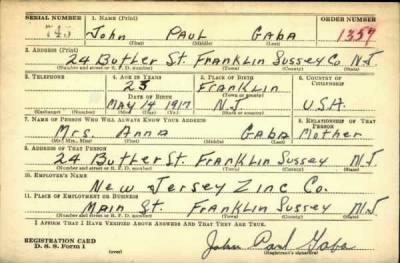 SERIAL NUMBER 1. NAME (Print) ORDER NUMBER
John Paul Gaba 1359
(First) (Middle) (Last)
2. ADDRESS (Print)
24 Butler St. Franklin Sussex Co N.J.
(Number and street or R. F. D. number) (Town) (County) (State)
3. TELEPHONE 4. AGE IN YEARS 5. PLACE OF BIRTH 6. COUNTRY OF CITIZENSHIP
23 Franklin
DATE OF BIRTH (Town or county)
May 14 1917 N.J. U.S.A.
(Exchange) (No.) (Mo.) (Day) (Yr.) (State or country)
7. NAME OF PERSON WHO WILL ALWAYS KNOW YOUR ADDRESS 8. RELATIONSHIP OF THAT PERSON
Mrs. Anna Gaba Mother
(Mr., Mrs., Miss) (First) (Middle) (Last)
9. ADDRESS OF THAT PERSON
24 Butler St. Franklin Sussex N.J.
(Number and street or R. F. D. number) (Town) (County) (State)
10. EMPLOYER'S NAME
New Jersey Zinc Co.
11. PLACE OF EMPLOYMENT OR BUSINESS
Main St. Franklin Sussex N.J.
(Number and street or R. F. D. number) (Town) (County) (State)
I AFFIRM THAT I HAVE VERIFIED ABOVE ANSWERS AND THAT THEY ARE TRUE.
REGISTRATION CARD
D. S. S. Form 1 (over) John Paul Gaba
(Registrant's signature)